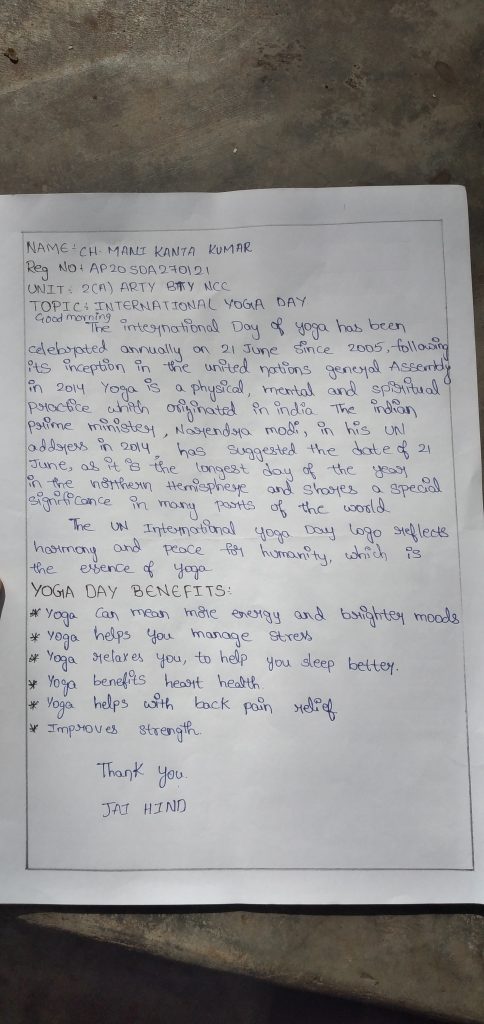 NAME:- CH. MANI KANTA KUMAR
Reg No: AP20SDA270121
UNIT: 2(A) ARTY BTY NCC
TOPIC: INTERNATIONAL YOGA DAY
Good morning
The international Day of yoga has been
celebrated annually on 21 June since 2005, following
its inception in the united nations general Assembly
in 2014 Yoga is a physical, mental and spiritual
practice which originated in india The indian
prime minister, Narendra modi, in his UN
address in 2014, has suggested the date of 21
June, as it is the longest day of the year
in the northern Hemisphere and shares a special
significance in many parts of the world
The UN International yoga Day logo reflects
harmony and peace for humanity, which is
the essence of yoga
YOGA DAY BENEFITS:
* Yoga can mean more energy and brighter moods
* Yoga helps you manage stress
* Yoga relaxes you, to help you sleep better.
* Yoga benefits heart health.
* Yoga helps with back pain relief
* Improves strength.
Thank you.
JAI HIND